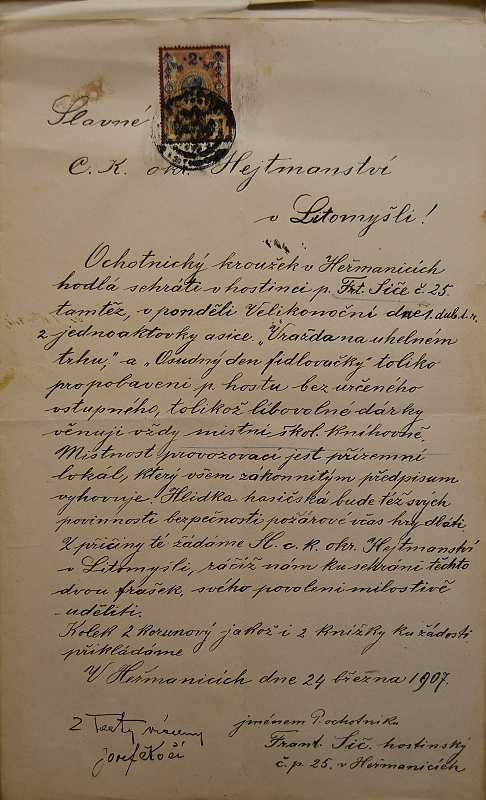 2
Slavné
C. K. okr. Hejtmanství
v Litomyšli!
Ochotnický kroužek v Heřmanicích
hodlá sehráti v hostinci p. Frt. Siče č. 25.
tamtéž, v pondělí Velikonoční dne 1. dub. t. r.
2 jednoaktovky a sice. „Vražda na uhelném
trhu," a „Osudný den fidlovačky" toliko
pro pobavení p. hostu bez určeného
vstupného, tolikož libovolné dárky
věnují vždy místní škol. knihovně.
Místnost provozovací jest přízemní
lokál, který všem zákonnitým předpisum
vyhovuje. Hlídka hasičská bude též svých
povinností bezpečnosti požárové včas hry dbáti
Z příčiny té žádáme Sl. c. k. okr. Hejtmanství
v Litomyšli, ráčíž nám ku sehrání těchto
dvou frašek, svého povolení milostivě
uděliti.
Kolek 2 korunový jakož i 2 knížky ku žádosti
přikládáme
V Heřmanicích dne 24 března 1907.
jménem P. ochotníku
Frant. Sič. hostinský
č. p. 25. v Heřmanicích
2 Texty
Josef Kočí